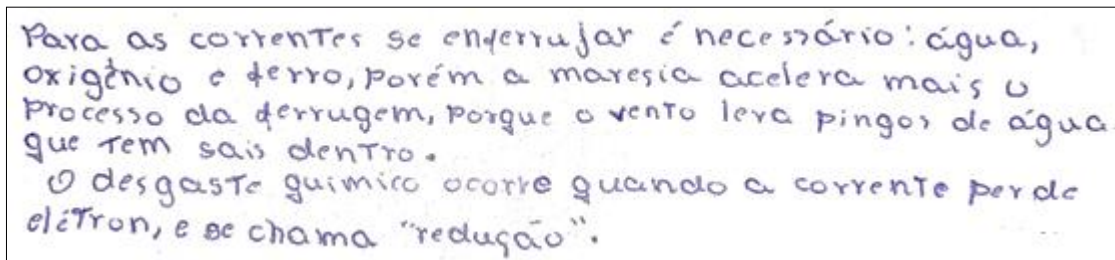 Para as correntes se enferrujar é necessário: água,
oxigênio e ferro, porém a maresia acelera mais o
processo da ferrugem, porque o vento leva pingos de água
que tem sais dentro.
O desgaste químico ocorre quando a corrente perde
elétron, e se chama "redução".